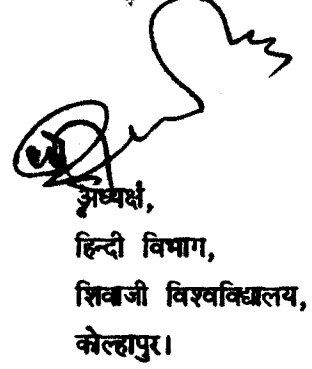 अध्यक्ष,
हिन्दी विभाग,
शिवाजी विश्वविद्यालय,
कोल्हापुर।